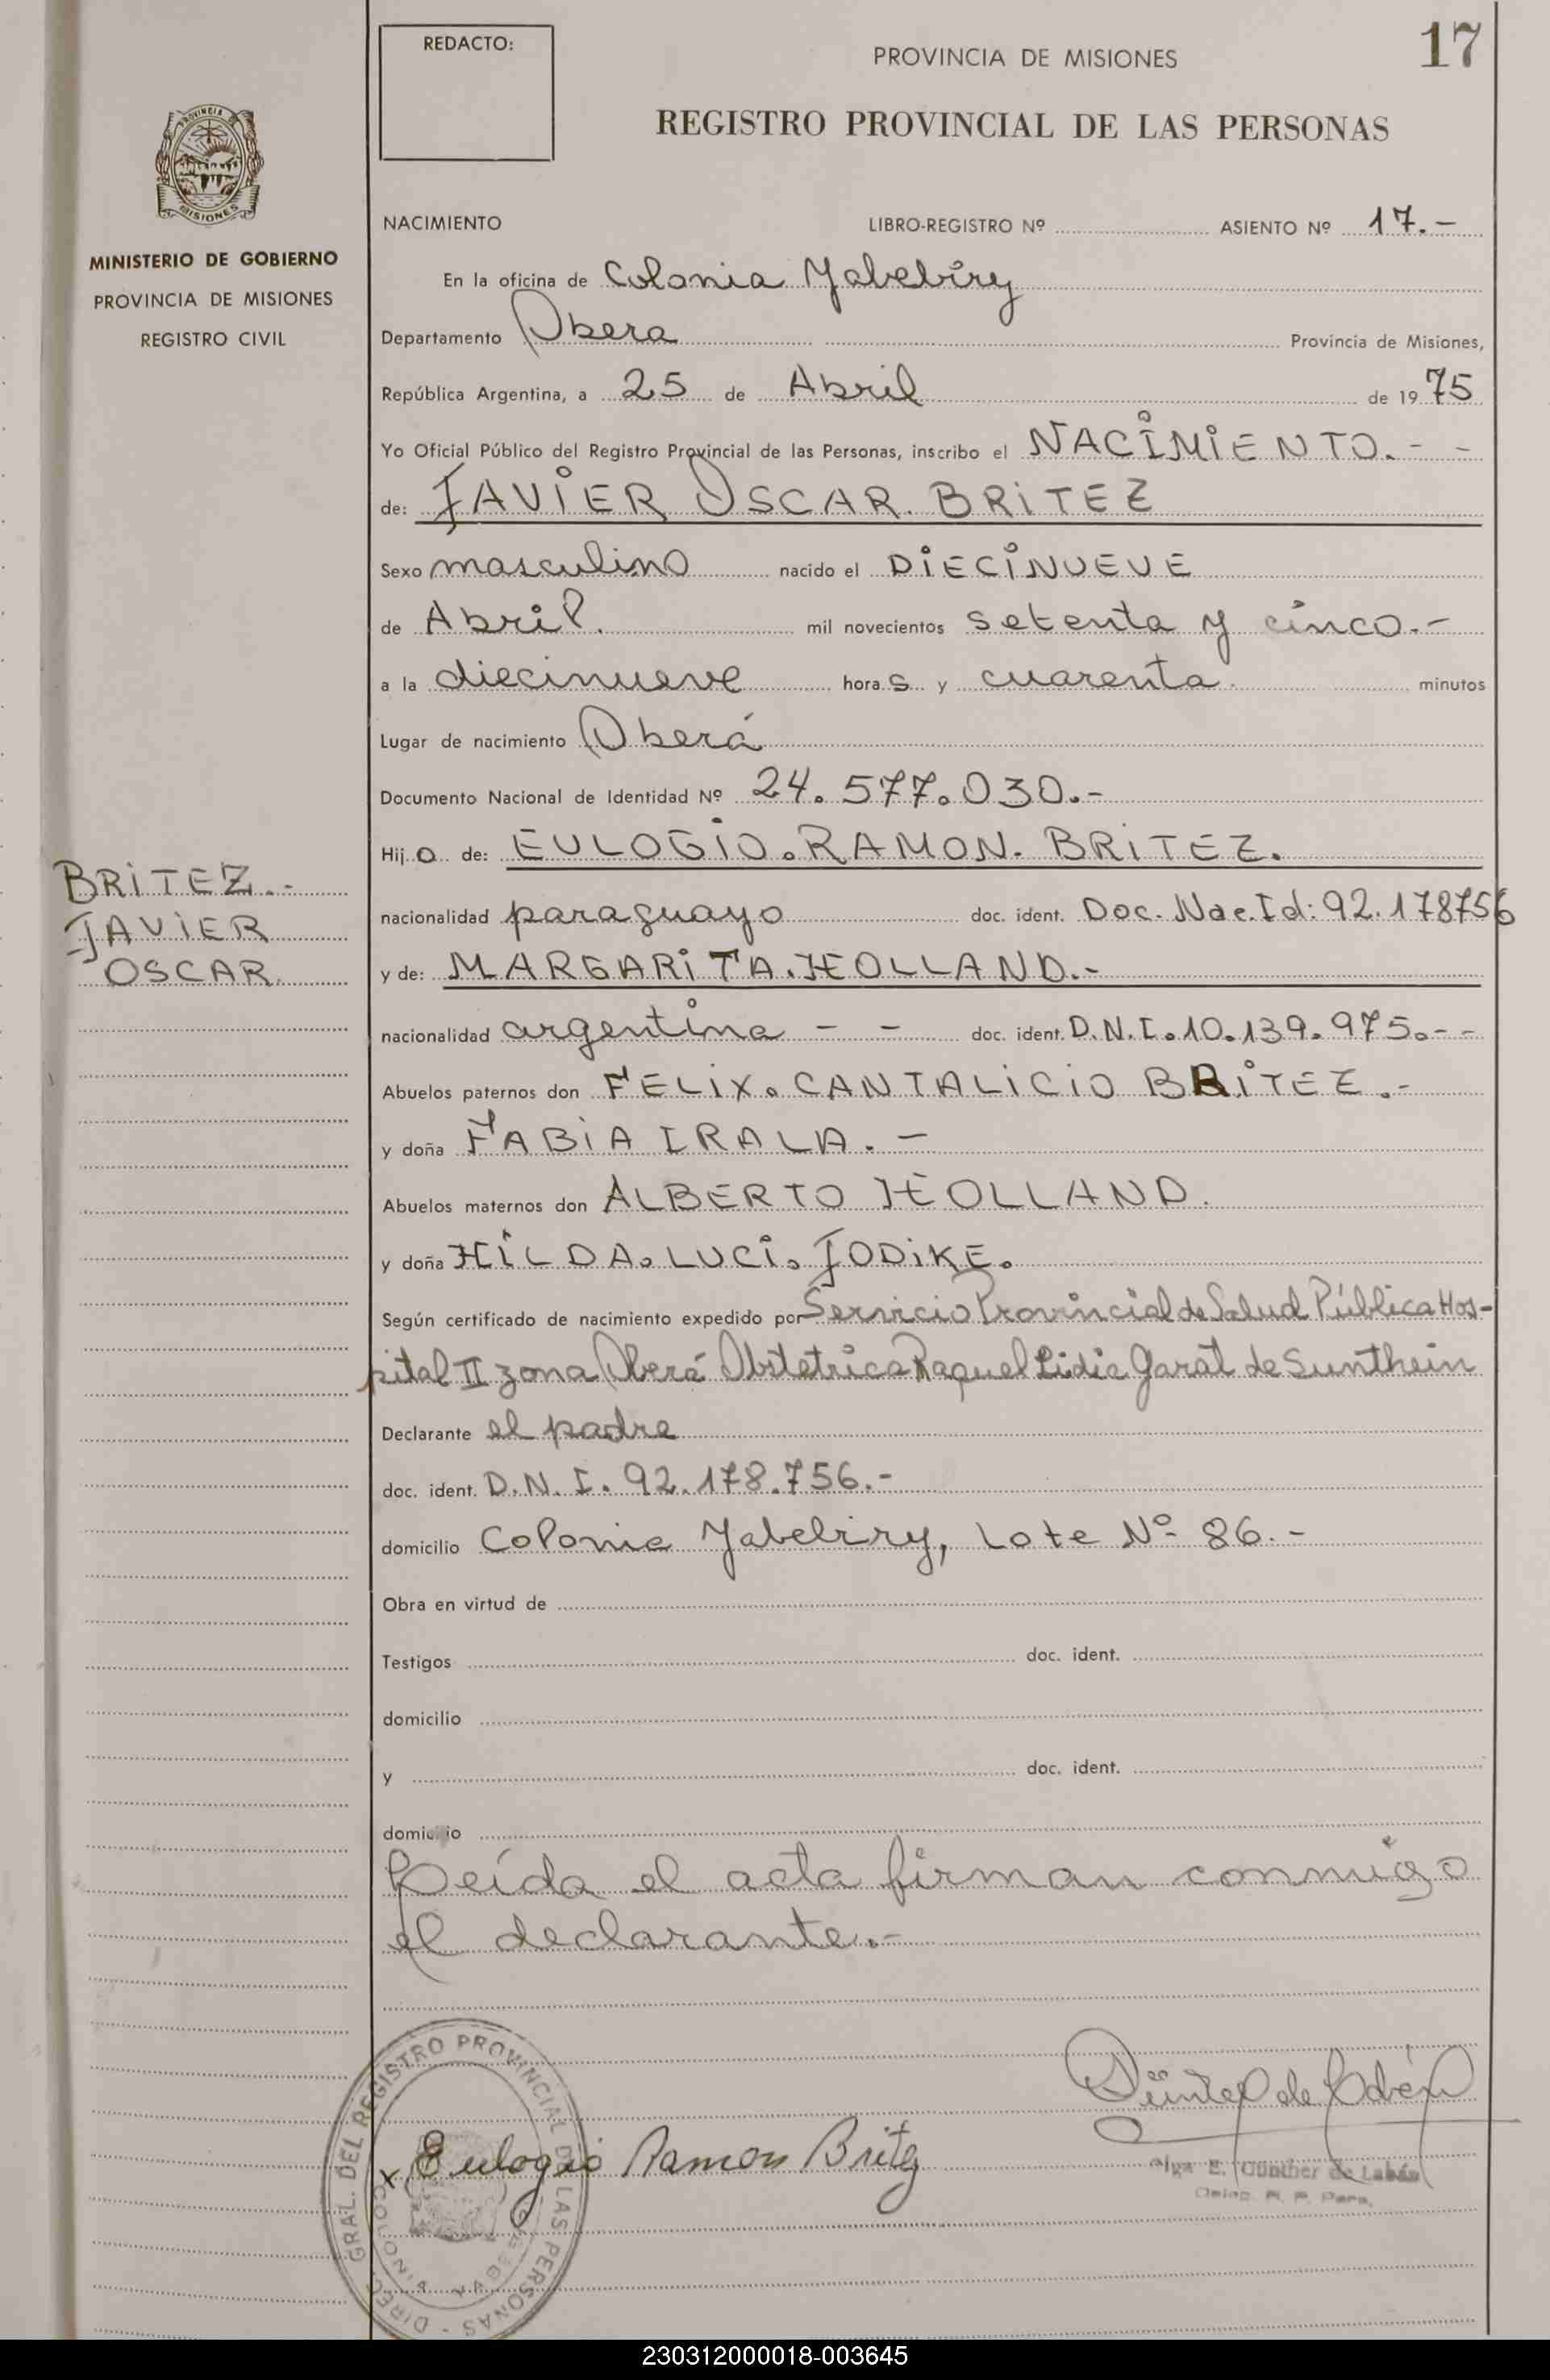 REDACTO:
PROVINCIA DE MISIONES
17
REGISTRO PROVINCIAL DE LAS PERSONAS
PROVINCIA DE
MISIONES
MINISTERIO DE GOBIERNO
PROVINCIA DE MISIONES
REGISTRO CIVIL
NACIMIENTO LIBRO-REGISTRO Nº ASIENTO Nº 17.-
En la oficina de Colonia Yabebiry
Departamento Obera Provincia de Misiones,
República Argentina, a 25 de Abril de 1975
Yo Oficial Público del Registro Provincial de las Personas, inscribo el NACIMIENTO.- -
de: JAVIER OSCAR. BRITEZ
Sexo masculino nacido el DIECINUEVE
de Abril. mil novecientos setenta y cinco.-
a la diecinueve horas y cuarenta. minutos
Lugar de nacimiento Oberá
Documento Nacional de Identidad Nº 24.577.030.-
Hijo de: EULOGIO. RAMON. BRITEZ.
BRITEZ.-
JAVIER
OSCAR.
nacionalidad paraguayo doc. ident. Doc. Nac. Id: 92.178756
y de: MARGARITA. HOLLAND.-
nacionalidad argentina - - doc. ident. D.N.I. 10.139.975.- -
Abuelos paternos don FELIX. CANTALICIO BRITEZ.-
y doña FABIA IRALA.-
Abuelos maternos don ALBERTO HOLLAND.
y doña HILDA. LUCI. JODIKE.
Según certificado de nacimiento expedido por Servicio Provincial de Salud Pública Hos-
pital II zona Oberá Obstetrica Raquel Lidia Garat de Sunthein
Declarante el padre
doc. ident. D.N.I. 92.178.756.-
domicilio Colonia Yabebiry, Lote Nº 86.-
Obra en virtud de
Testigos doc. ident.
domicilio
y doc. ident.
domicilio
Leída el acta firman conmigo
el declarante.-
DIREC. GRAL. DEL REGISTRO PROVINCIAL DE LAS PERSONAS -
COLONIA
x Eulogio Ramon Britez
Olga E. Günther de Labán
230312000018-003645